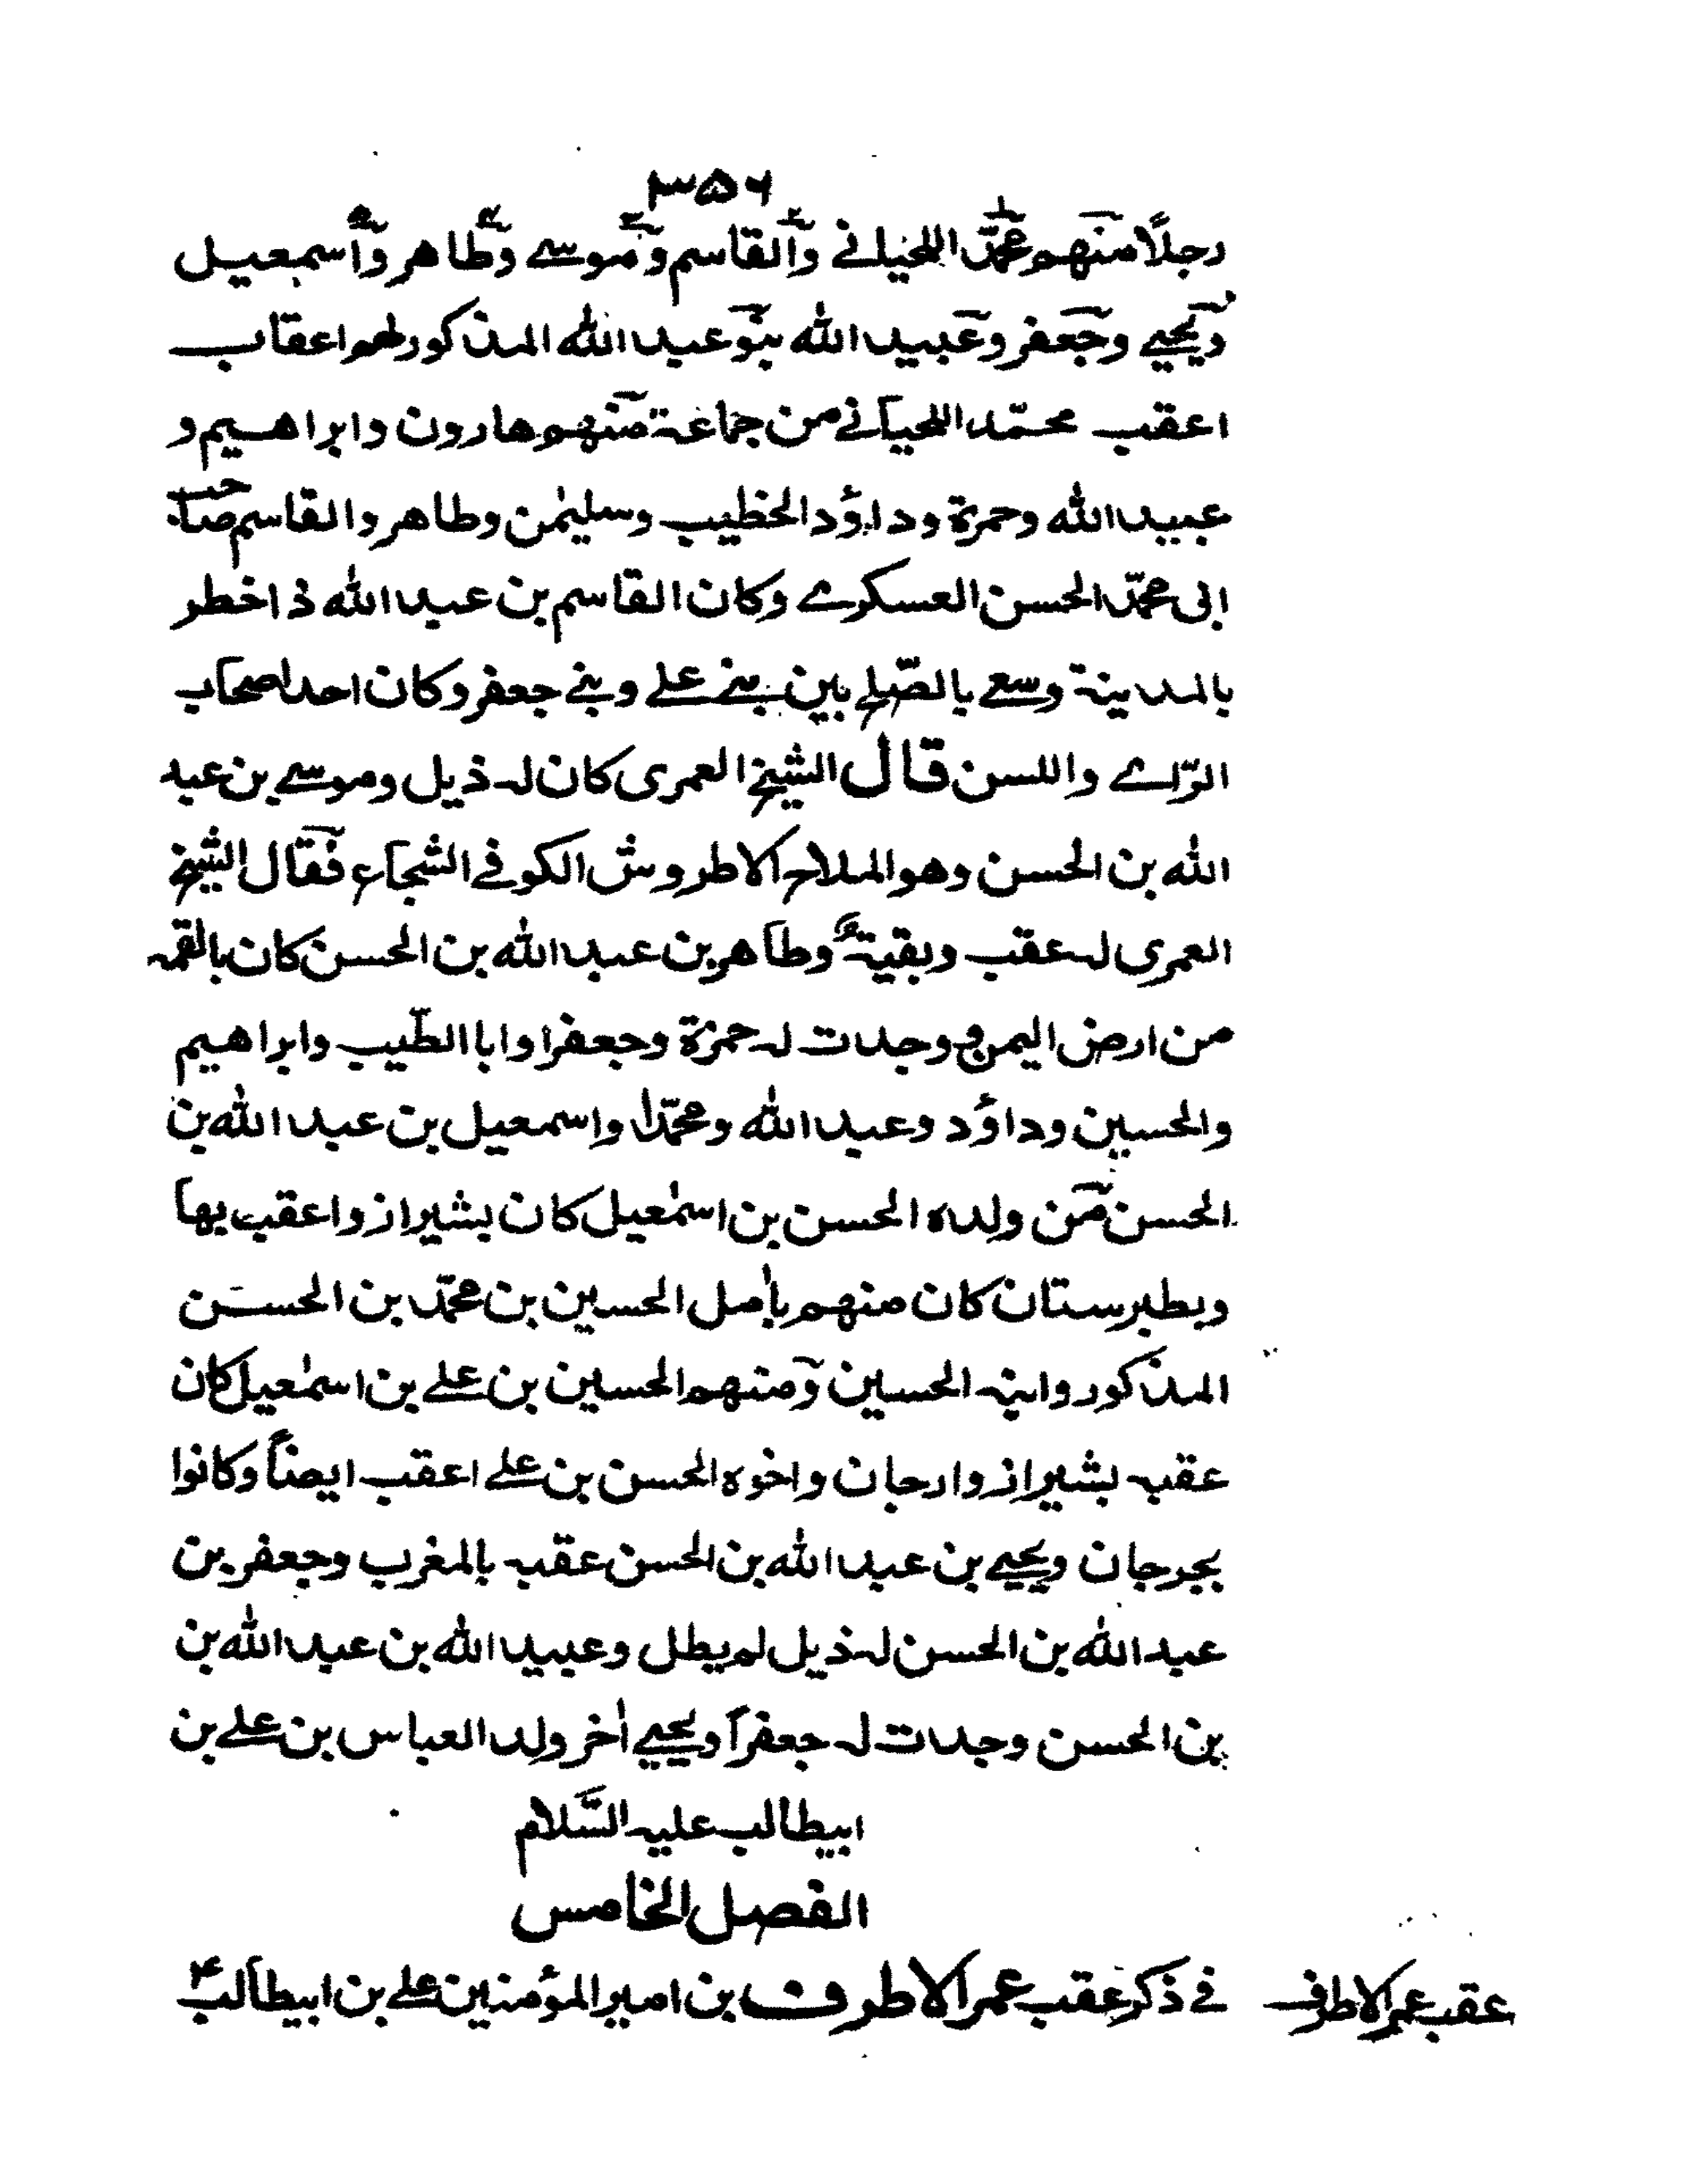 ۳۵۶
رجلاً منهم محمّد اللحيانے والقاسم وموسے وطاهر واسمعيل
ويحيے وجعفر وعبيد الله بنو عبد الله المذكور لهم اعقاب
اعقب محمّد اللحيانے من جماعة منهم هارون وابراهيم و
عبيد الله وحمزة وداؤد الخطيب وسليمٰن وطاهر والقاسم صاحب
ابى محمّد الحسن العسكرے وكان القاسم بن عبد الله ذا خطر
بالمدينة وسعے بالصّلح بين بنے علے وبنے جعفر وكان احد اصحاب
الرّاے واللسن قال الشيخ العمرى كان له ذيل وموسے بن عبد
الله بن الحسن وهو الملاح الاطروش الكوفے الشجاع فقال الشيخ
العمرى له عقب وبقية وطاهر بن عبد الله بن الحسن كان بالقمه
من ارض اليمن وجدت له حمزة وجعفرا وابا الطّيب وابراهيم
والحسين وداؤد وعبد الله ومحمّدا واسمعيل بن عبد الله بن
الحسن من ولده الحسن بن اسمٰعيل كان بشيراز واعقب بها
وبطبرستان كان منهم بآمل الحسين بن محمّد بن الحسن
المذكور وابنه الحسين ومنهم الحسين بن علے بن اسمٰعيل كان
عقبه بشيراز وارجان واخوه الحسن بن علے اعقب ايضاً وكانوا
بجرجان ويحيے بن عبد الله بن الحسن عقبه بالمغرب وجعفر بن
عبد الله بن الحسن له ذيل لم يطل وعبيد الله بن عبد الله بن
بن الحسن وجدت له جعفراً ويحيے اٰخر ولد العباس بن علے بن
ابيطالب عليه السّلام
الفصل الخامس
فے ذكر عقب عمر الاطرف بن امير المؤمنين علے بن ابيطالبؑ
عقب عمر الاطرف